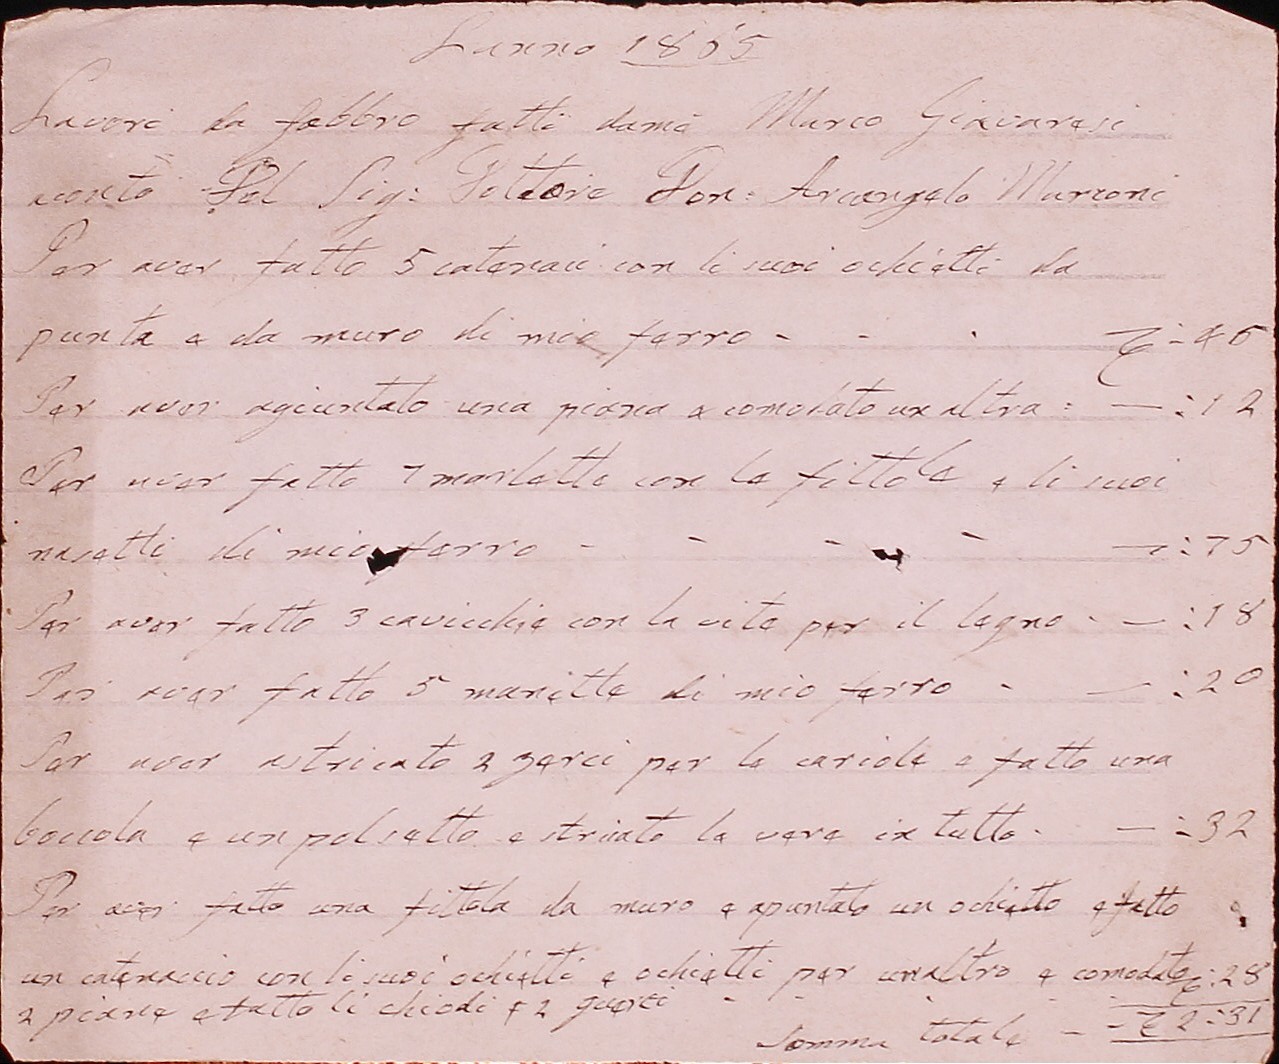 Lanno 1865
Lavori da febbro fatti damè Marco Giavaresi
conto Del Sig: Dottore Don: Arcangelo Marconi
Per aver fatto 5 catenaci con li suoi ochietti da
punta e da muro di mio ferro - - - £ : 46
Per aver agiuntato una piana e comodato un altra : — : 12
Per aver fatto 7 marlette con le fittole e li suoi
nasetti di mio ferro - - - - — : 75
Per aver fatto 3 cavicchie con la vite per il legno - — : 18
Per aver fatto 5 manette di mio ferro - — : 20
Per aver astricato 2 zerci per le cariole e fatto una
boccola e un polsetto e stricato le vere in tutto - — : 32
Per aver fatto una fittola da muro e apuntato un ochietto e fatto
un catenaccio con li suoi ochietti e ochietti per unaltro e comodato £ : 28
2 piane e fatto li chiodi e 2 guerci - - - -
Somma totale - - £ 2 : 31